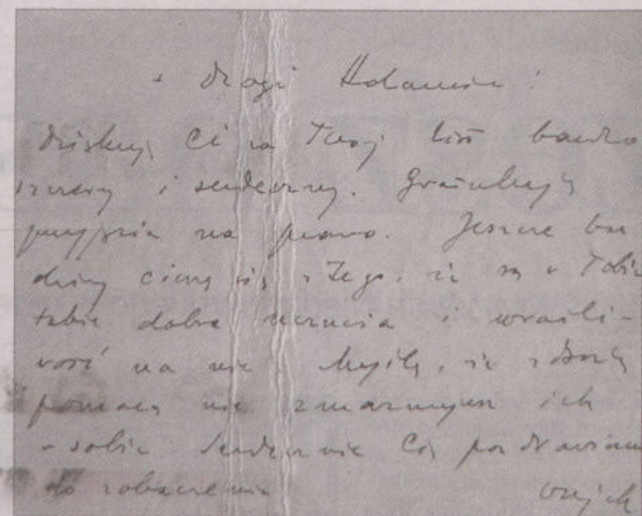 + Drogi Adamie!
Dziękuję Ci za Twój list bardzo
szczery i serdeczny. Gratuluję
przyjęcia na prawo. Jeszcze bar
dziej cieszę się z tego, że są w Tobie
takie dobre uczucia i wrażli-
wość na nie. Myślę, że z Bożą
pomocą nie zmarnujesz ich
w sobie. Serdecznie Cię pozdrawiam
do zobaczenia